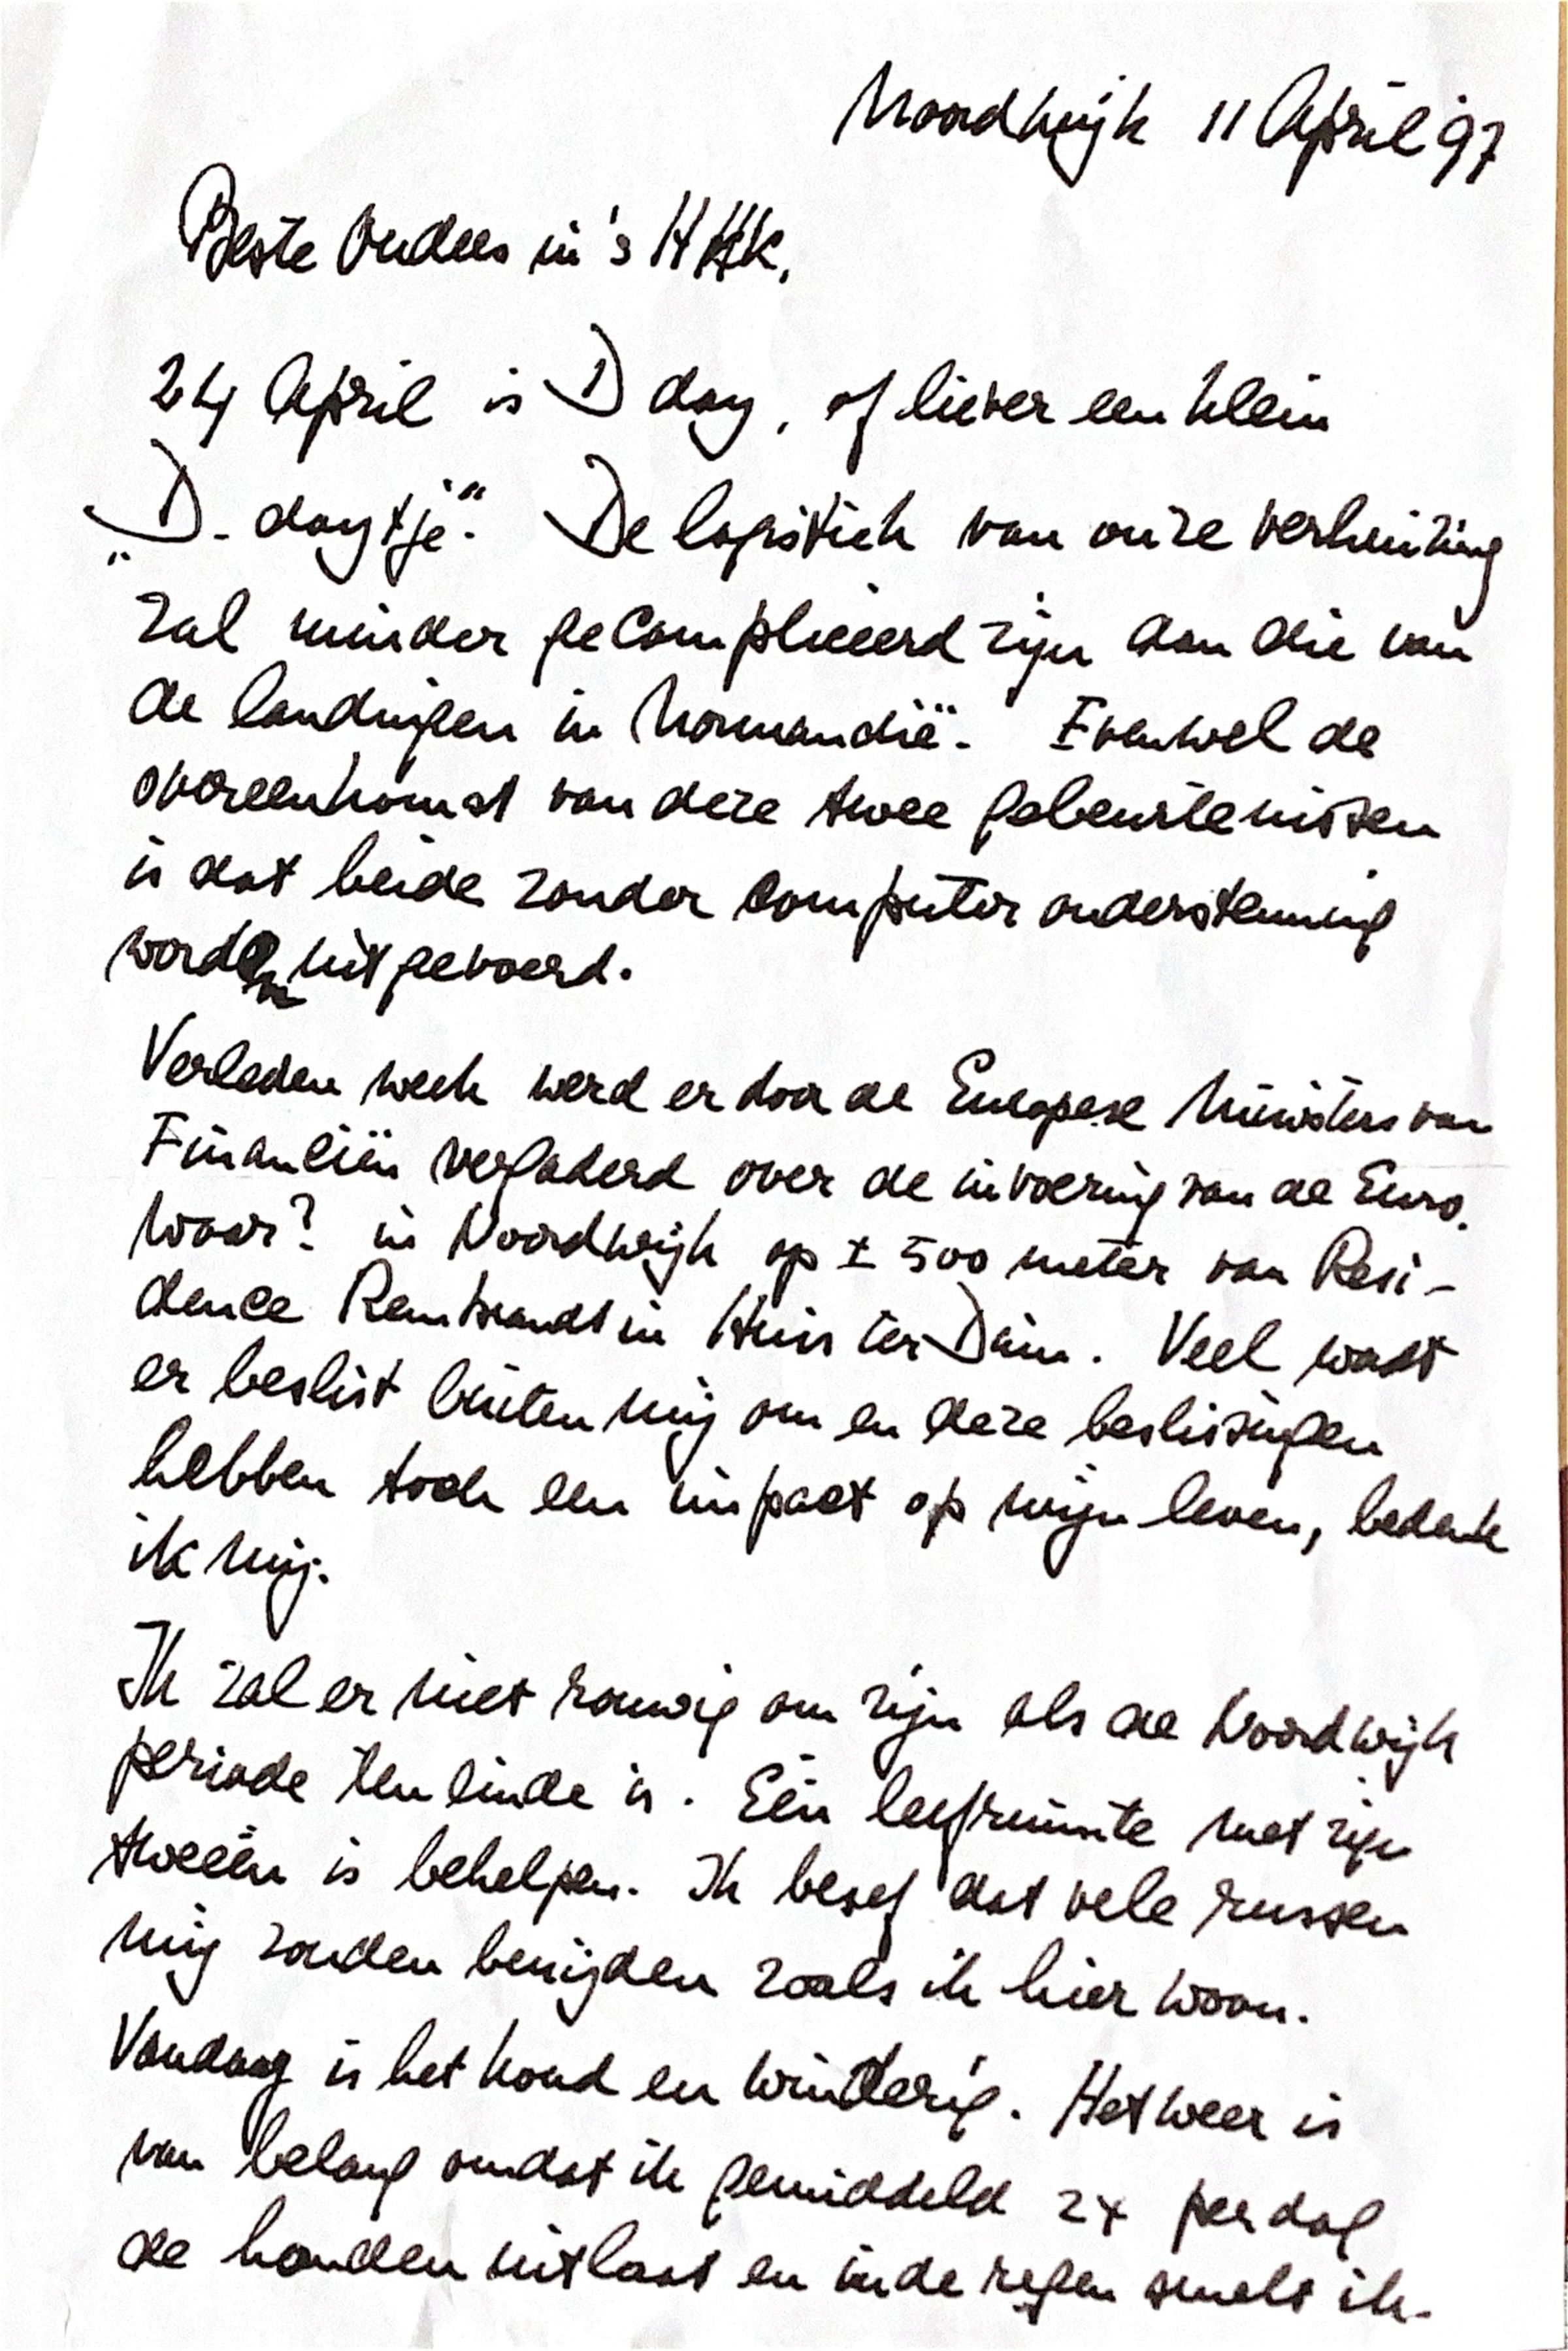 Noordwijk 11 April '97
Beste Ouders in 's HHK,
24 April is D day, of liever een klein
„D-daytje". De logistiek van onze verhuizing
zal minder gecompliceerd zijn dan die van
de landingen in Normandië. Evenwel de
overeenkomst van deze twee gebeurtenissen
is dat beide zonder computer ondersteuning
worden uitgevoerd.
Verleden week werd er door de Europese Ministers van
Financiën vergaderd over de invoering van de Euro.
Waar? in Noordwijk op ± 500 meter van Resi-
dence Rembrandt in Huis ter Duin. Veel wordt
er beslist buiten mij om en deze beslissingen
hebben toch een impact op mijn leven, bedenk
ik mij.
Ik zal er niet rouwig om zijn als de Noordwijk
periode ten einde is. Eén leefruimte met zijn
tweeën is behelpen. Ik besef dat vele russen
mij zouden benijden zoals ik hier woon.
Vandaag is het koud en winderig. Het weer is
van belang omdat ik gemiddeld 2x per dag
de honden uitlaat en in de regen smelt ik.